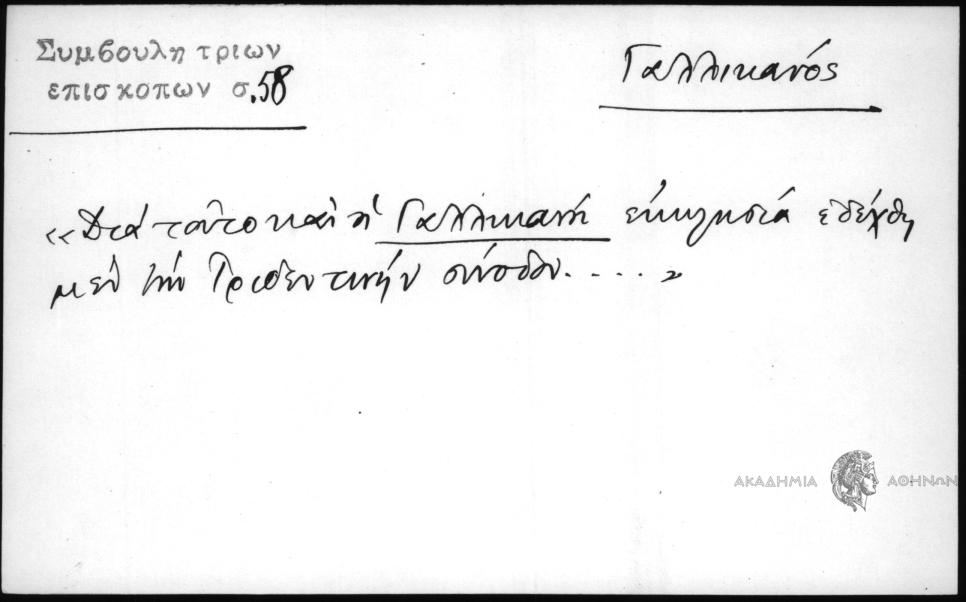 Συμβουλη τριων
επισκοπων σ.58
Γαλλικανός
«Διά τοῦτο καὶ ἡ Γαλλικανή εκκλησιά εδέχθη
μεν τήν Τριδεντινήν σύνοδον.....»
ΑΚΑΔΗΜΙΑ ΑΘΗΝΩΝ